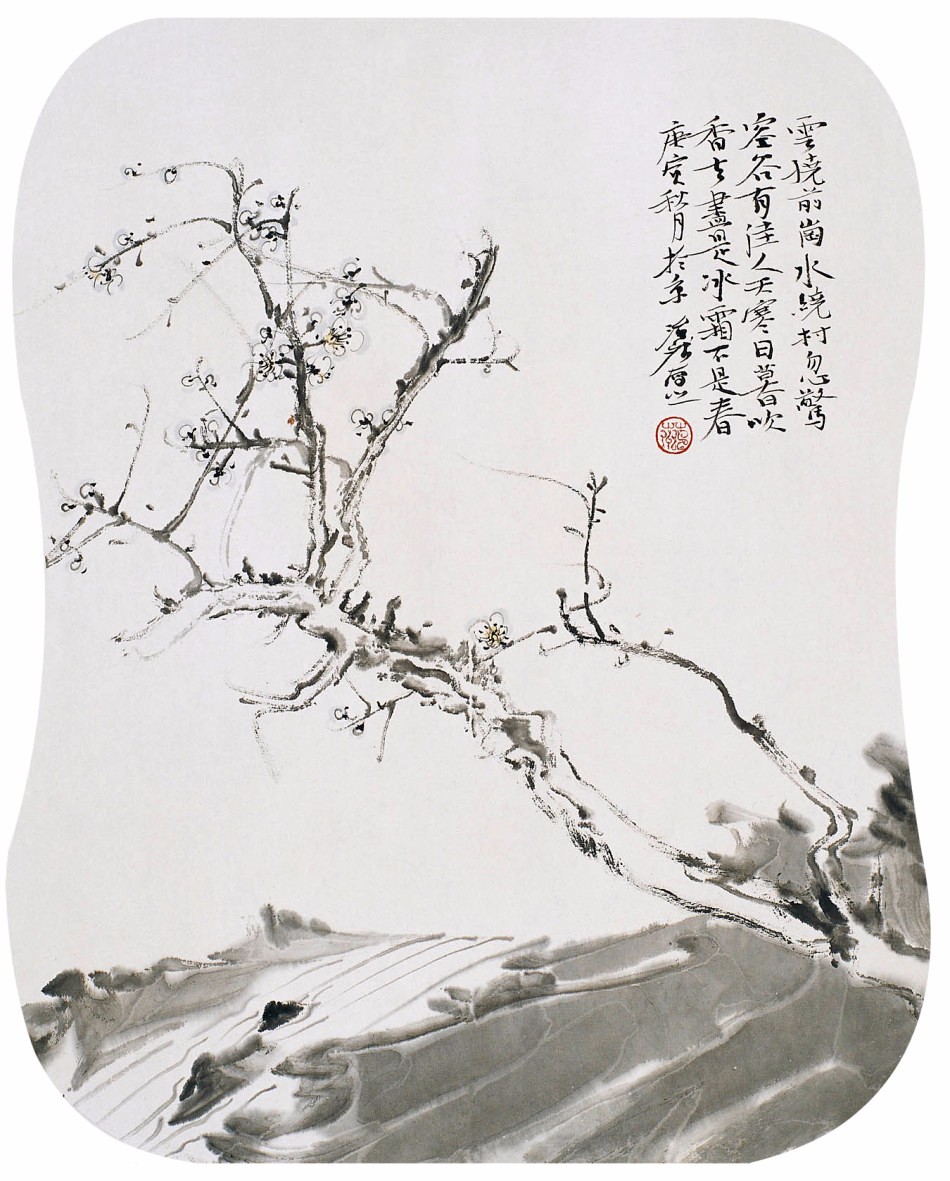 雲繞前崗水繞村忽驚
空谷有佳人天寒日暮吹
香去盡是冰霜不是春
庚寅秋月於京